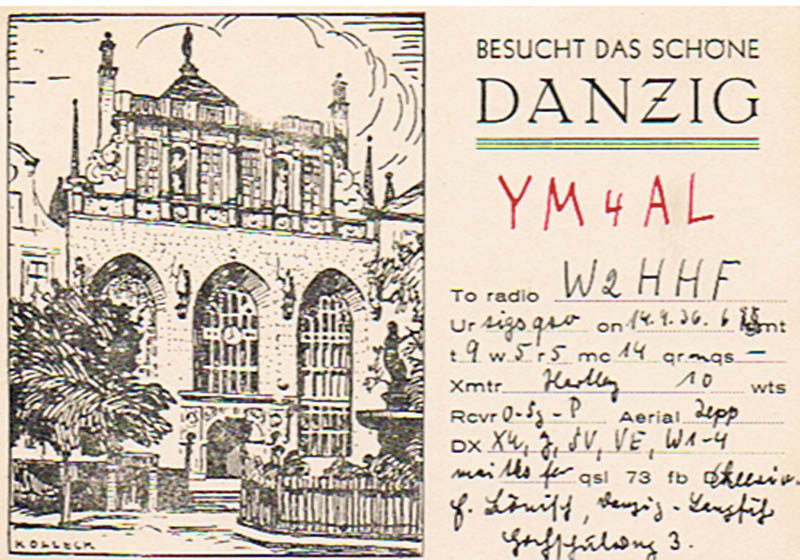 BESUCHT DAS SCHÖNE
DANZIG
YM4AL
To radio W2HHF
Ur sigs qso on 14.9.36. 6 gmt
t 9 w 5 r 5 mc 14 qrm qs -
Xmtr Hartley 10 wts
Rcvr 0-Sg-P Aerial Zepp
DX XU, J, SV, VE, W1-4
tks fr qsl 73 fb
Danzig-Langfuhr
3.
KOLLECK